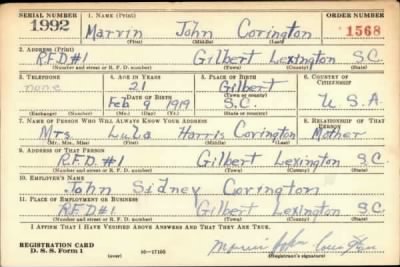 SERIAL NUMBER 1. NAME (Print) ORDER NUMBER
1992 Marvin John Covington 1568
(First) (Middle) (Last)
2. ADDRESS (Print)
R.F.D #1 Gilbert Lexington S.C.
(Number and street or R. F. D. number) (Town) (County) (State)
3. TELEPHONE 4. AGE IN YEARS 5. PLACE OF BIRTH 6. COUNTRY OF CITIZENSHIP
none 21 Gilbert
(Town or county)
DATE OF BIRTH
Feb 9 1919 S.C. U.S.A
(Exchange) (Number) (Mo.) (Day) (Yr.) (State or country)
7. NAME OF PERSON WHO WILL ALWAYS KNOW YOUR ADDRESS 8. RELATIONSHIP OF THAT PERSON
Mrs. Lula Harris Covington Mother
(Mr., Mrs., Miss) (First) (Middle) (Last)
9. ADDRESS OF THAT PERSON
R.F.D. #1 Gilbert Lexington S.C
(Number and street or R. F. D. number) (Town) (County) (State)
10. EMPLOYER'S NAME
John Sidney Covington
11. PLACE OF EMPLOYMENT OR BUSINESS
R.F.D #1 Gilbert Lexington S.C
(Number and street or R. F. D. number) (Town) (County) (State)
I AFFIRM THAT I HAVE VERIFIED ABOVE ANSWERS AND THAT THEY ARE TRUE.
REGISTRATION CARD
D. S. S. Form 1 (over) 16—17105 (Registrant's signature)